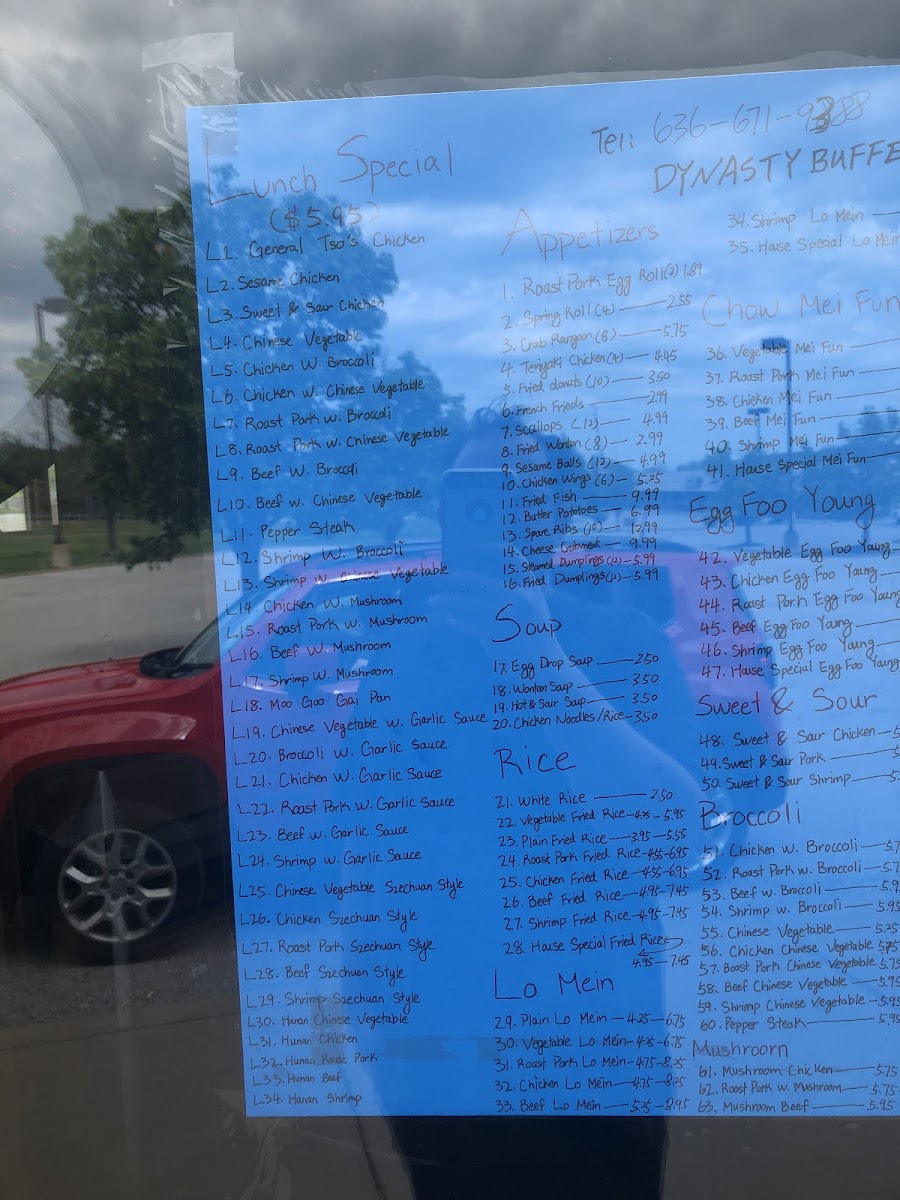 Lunch Special
($5.95)
L1. General Tso's Chicken
L2. Sesame Chicken
L3. Sweet & Sour Chicken
L4. Chinese Vegetable
L5. Chicken W. Broccoli
L6. Chicken W. Chinese Vegetable
L7. Roast Pork w. Broccoli
L8. Roast Pork w. Chinese Vegetable
L9. Beef W. Broccoli
L10. Beef w. Chinese Vegetable
L11. Pepper Steak
L12. Shrimp W. Broccoli
L13. Shrimp w. Chinese Vegetable
L14. Chicken W. Mushroom
L15. Roast Pork w. Mushroom
L16. Beef W. Mushroom
L17. Shrimp W. Mushroom
L18. Moo Goo Gai Pan
L19. Chinese Vegetable w. Garlic Sauce
L20. Broccoli w. Garlic Sauce
L21. Chicken w. Garlic Sauce
L22. Roast Pork w. Garlic Sauce
L23. Beef w. Garlic Sauce
L24. Shrimp w. Garlic Sauce
L25. Chinese Vegetable Szechuan Style
L26. Chicken Szechuan Style
L27. Roast Pork Szechuan Style
L28. Beef Szechuan Style
L29. Shrimp Szechuan Style
L30. Hunan Chinese Vegetable
L31. Hunan Chicken
L32. Hunan Roast Pork
L33. Hunan Beef
L34. Hunan Shrimp
Tel: 636-671-9388
DYNASTY BUFFE
Appetizers
1. Roast Pork Egg Roll(2) 1.89
2. Spring Roll (4) 2.55
3. Crab Rangoon (8) 5.75
4. Teriyaki Chicken(4) 4.45
5. Fried donuts (10) 3.50
6. French Frieds 2.99
7. Scallops (12) 4.99
8. Fried Wonton (8) 2.99
9. Sesame Balls (12) 4.99
10. Chicken Wings (6) 5.25
11. Fried Fish 9.99
12. Butter Potatoes 6.99
13. Spare Ribs (10) 12.99
14. Cheese 9.99
15. Steamed Dumplings(12) 5.99
16. Fried Dumplings(12) 5.99
Soup
17. Egg Drop Soup 2.50
18. Wonton Soup 3.50
19. Hot & Sour Soup 3.50
20. Chicken Noodles/Rice 3.50
Rice
21. White Rice 2.50
22. Vegetable Fried Rice 4.75 - 5.95
23. Plain Fried Rice 3.95-5.55
24. Roast Pork Fried Rice 4.55-6.95
25. Chicken Fried Rice 4.55-6.95
26. Beef Fried Rice 4.95-7.45
27. Shrimp Fried Rice 4.95-7.45
28. House Special Fried Rice
4.95 - 7.45
Lo Mein
29. Plain Lo Mein 4.25-6.75
30. Vegetable Lo Mein 4.25-6.75
31. Roast Pork Lo Mein 4.75-8.25
32. Chicken Lo Mein 4.75-8.25
33. Beef Lo Mein 5.25-8.95
34. Shrimp Lo Mein
35. House Special Lo Mein
Chow Mei Fun
36. Vegetable Mei Fun
37. Roast Pork Mei Fun
38. Chicken Mei Fun
39. Beef Mei Fun
40. Shrimp Mei Fun
41. House Special Mei Fun
Egg Foo Young
42. Vegetable Egg Foo Young
43. Chicken Egg Foo Young
44. Roast Pork Egg Foo Young
45. Beef Egg Foo Young
46. Shrimp Egg Foo Young
47. House Special Egg Foo Young
Sweet & Sour
48. Sweet & Sour Chicken
49. Sweet & Sour Pork
50. Sweet & Sour Shrimp
Broccoli
51. Chicken w. Broccoli 5.7
52. Roast Pork w. Broccoli 5.7
53. Beef w. Broccoli 5.9
54. Shrimp w. Broccoli 5.95
55. Chinese Vegetable 5.25
56. Chicken Chinese Vegetable 5.75
57. Roast Pork Chinese Vegetable 5.75
58. Beef Chinese Vegetable 5.95
59. Shrimp Chinese Vegetable 5.95
60. Pepper Steak 5.95
Mushroom
61. Mushroom Chicken 5.75
62. Roast Pork w. Mushroom 5.75
63. Mushroom Beef 5.95